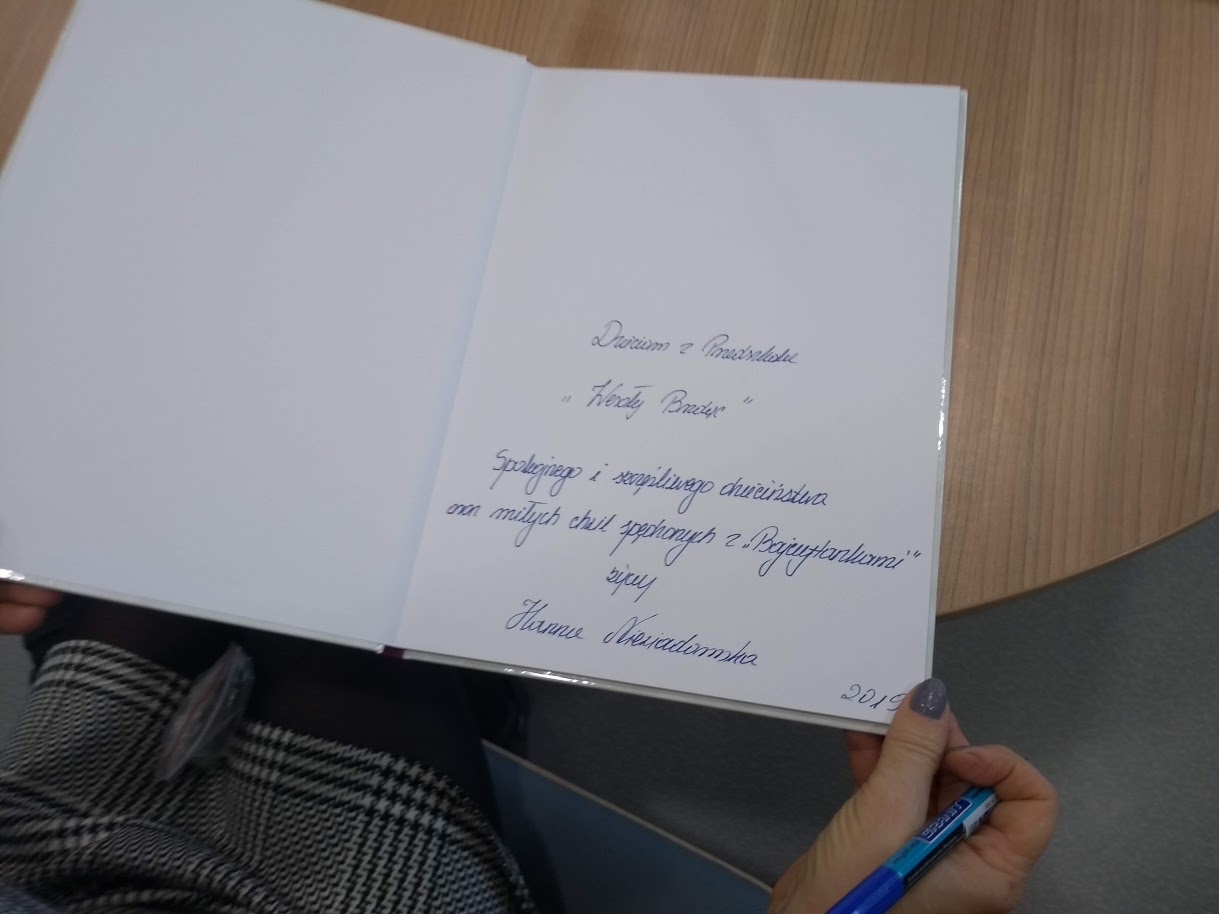 Dzieciom z Przedszkola
„Wesoły Brzdąc"
Spokojnego i szczęśliwego dzieciństwa
oraz miłych chwil spędzonych z „Bajczytankami"
życzy
Hanna Niewiadomska
2019